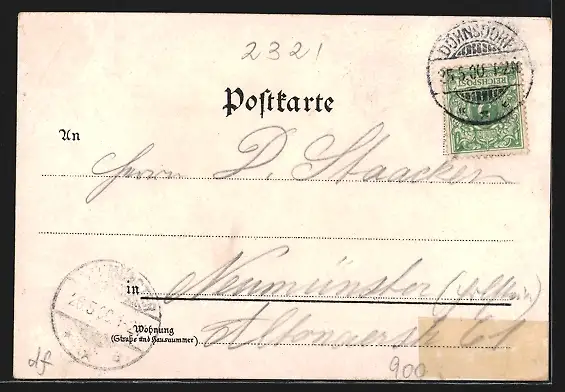 2321
DÖHNSDORF
26.5.00. 1-2N
REICHSPOST
Postkarte
An
Herrn D. Staacken
in Neumünster (Holstein)
26.5.00.
Wohnung
(Straße und Hausnummer) Altonaerstr 61
df 900